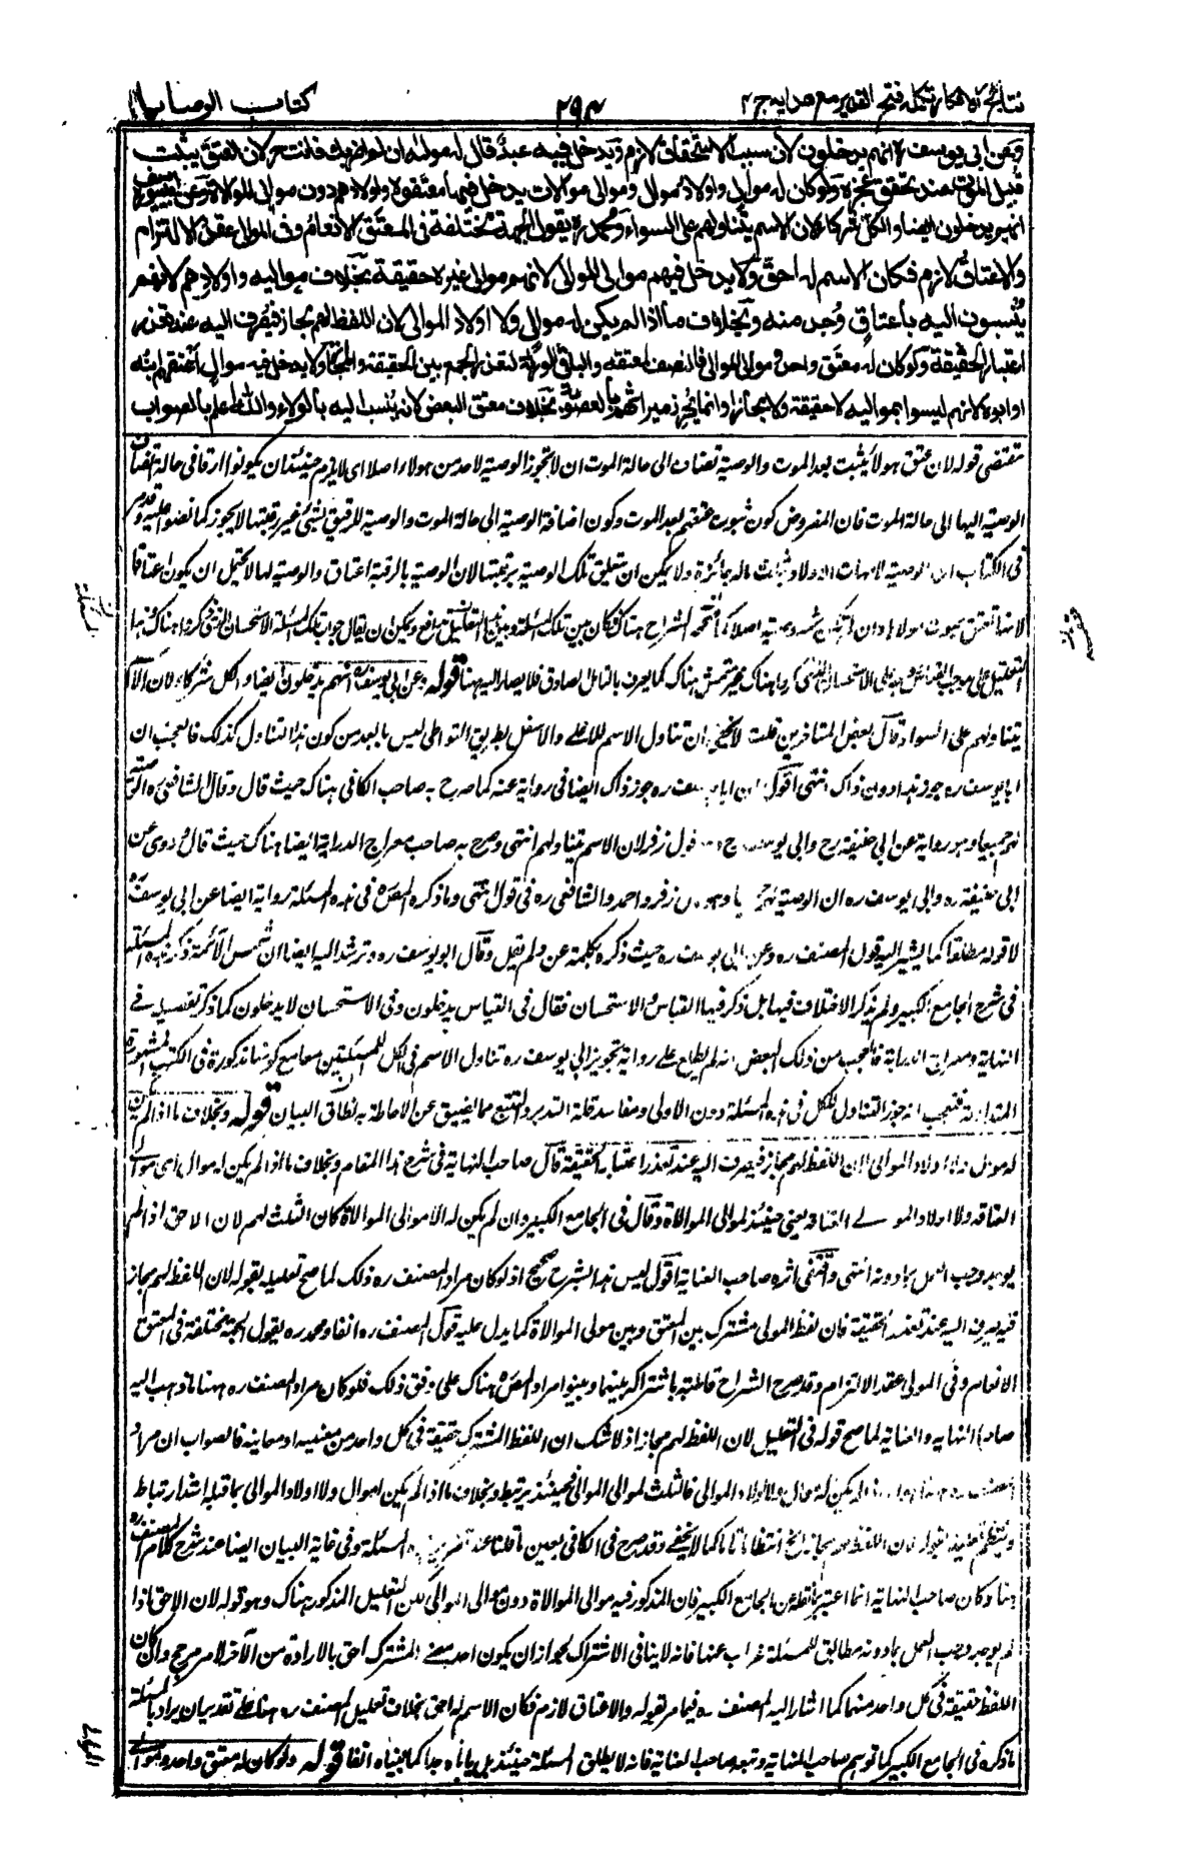 نتائج الافكار تكمله فتح القدير مع هدايه ج ٤
٢٩٤
كتاب الوصايا
وعن ابي يوسف رہ انهم يدخلون لان سبب الاستحقاق لازم ويدخل فيه عبد قال له مولاه ان لم اضربك فانت حر لان العتق يثبت
قبيل الموت عند تحقق عجزه ولو كان له موال واولاد موال وموالي موالاة يدخل فيها معتقوه واولادهم دون موالي الموالاة وعن ابي يوسف رہ
انهم يدخلون ايضا والكل شركاء لان الاسم يتناولهم على السواء ومحمد رہ يقول الجهة مختلفة في المعتق الانعام وفي الموالي عقد الالتزام
والاعتاق لازم فكان الاسم له احق ولا يدخل فيهم موالي الموالي لانهم موالي غيره حقيقة بخلاف مواليه واولادهم لانهم
ينسبون اليه باعتاق وجد منه وبخلاف ما اذا لم يكن له موال ولا اولاد الموالي لان اللفظ لهم مجاز فيصرف اليه عند تعذر
اعتبار الحقيقة ولو كان له معتق واحد وموالي الموالي فالنصف لمعتقه والباقي للورثة لتعذر الجمع بين الحقيقة والمجاز ولا يدخل فيه موال اعتقهم ابنه
او ابوه لانهم ليسوا بمواليه لا حقيقة ولا مجازا وانما يحرز ميراثهم بالعصوبة بخلاف معتق البعض لانه ينسب اليه بالولاء والله اعلم بالصواب
مقتضى قوله لان عتق هولاء يثبت بعد الموت والوصية تضاف الى حالة الموت ان لا تجوز الوصية لاحد من هولاء اصلا اى لا يلزم حينئذ ان يكونوا ارقا فى حالة
الوصية اليها الى حالة الموت فان المفروض كون ثبوت عتقهم بعد الموت وكون اضافة الوصية الى حالة الموت والوصية للرقيق بشئ غير رقبتها لا يجوز كما نصوا عليه
فى الكتاب ان الوصية لامهات الاولاد بثلث ماله جائزة ولا يمكن ان يتعلق تلك الوصية برقبتها لان الوصية بالرقبة اعتاق والوصية لها لا يحتمل ان يكون اعتاقا
لانها تعتق بموت مولاها وان لم يكن ثمه وصية اصلا
قوله وعن ابى يوسف رہ انهم يدخلون ايضا والكل شركاء لان الاسم
يتناولهم على السواء قال بعض المتاخرين قلت لا يخفى ان تناول الاسم للاعلى والاسفل بطريق التواطى ليس بابعد من كون هذا التناول كذلك فالعجب ان
ابا يوسف رہ جوز هذا دون ذاك انتهى اقول ان ابا يوسف رہ جوز ذاك ايضا فى رواية عنه كما صرح به صاحب الكافى هناك حيث قال وقال الشافعى رہ
لهم جميعا وهو رواية عن ابى حنيفة رح وابى يوسف رح وهو قول زفر لان الاسم يتناولهم انتهى وصرح به صاحب معراج الدراية ايضا هناك حيث قال وروى عن
ابى حنيفة رہ وابى يوسف رہ ان الوصية زفر واحمد والشافعى رہ فى قول انتهى وما ذكره المص فى هذه المسئلة رواية ايضا عن ابى يوسف رہ
لا قوله مطلقا كما يشير اليه قول المصنف رہ وعن ابى يوسف رہ حيث ذكره بكلمة عن ولم يقل وقال ابو يوسف رہ وترشد اليه ايضا ان شمس الائمة ذكر هذه المسئلة
فى شرح الجامع الكبير ولم يذكر الاختلاف فيها بل ذكر فيها القياس والاستحسان فقال فى القياس يدخلون وفى الاستحسان لا يدخلون كما ذكر تفصيله فى
النهاية ومعراج الدراية فالعجب من ذلك البعض انه لم يطلع على رواية تجويز ابى يوسف رہ تناول الاسم فى الكل للمسئلتين معا مع كونها مذكورة فى الكتب المشهورة
المتداولة فتعجب انه جوز التناول للكل فى هذه المسئلة دون الاولى ومفاسد قلة التدبر والتتبع مما يضيق عن الاحاطة به نطاق البيان قوله وبخلاف ما اذا لم يكن
له موال ولا اولاد الموالى لان اللفظ لهم مجاز فيصرف اليه عند تعذر اعتبار الحقيقة قال صاحب النهاية فى شرح هذا المقام وبخلاف ما اذا لم يكن له موال اى موالى
العتاقه ولا اولاد الموالى العتاقه يعنى حينئذ لموالى الموالاة وقال فى الجامع الكبير وان لم يكن له الا موالى الموالاة كان الثلث لهم لان الاحق اذا لم
يوجد وجب العمل بما دونه انتهى واقتفى اثره صاحب العناية اقول ليس هذا الشرح صحيح اذ لو كان مراد المصنف رہ ذلك لما صح تعليله بقوله لان اللفظ لهم مجاز
فيصرف اليه عند تعذر الحقيقة فان لفظ المولى مشترك بين المعتق وبين مولى الموالاة كما يدل عليه قول المصنف رہ انفا ومحمد رہ يقول الجهة مختلفة فى المعتق
الانعام وفى المولى عقد الالتزام وقد صرح الشراح قاطبة باشتراكه بينهما وبينوا مراد المص هناك على وفق ذلك فلو كان مراد المصنف رہ ههنا ما ذهب اليه
صاحبا النهايه والعناية لما صح قوله فى التعليل لان اللفظ لهم مجاز اذ لا شك ان اللفظ المشترك حقيقة فى كل واحد من معنييه او معانيه فالصواب ان مراد
المصنف رہ اذا لم يكن له موال ولا اولاد الموالى فالثلث لموالى الموالى فحينئذ يرتبط وبخلاف ما اذا لم يكن له موال ولا اولاد الموالى بما قبله اشد ارتباط
وينتظم تعليله بقوله لان اللفظ لهم مجاز الخ انتظاما تاما كما لا يخفى وقد صرح فى الكافى بعين ما قلنا عند تقرير هذه المسئلة وفى غاية البيان ايضا عند شرح كلام المصنف رہ
هنا وكان صاحب النهاية انما اعتبر بما نقله عن الجامع الكبير فان المذكور فيه موالى الموالاة دون موالى الموالى لكن التعليل المذكور هناك وهو قوله لان الاحق اذا
لم يوجد وجب العمل بما دونه مطابق للمسئلة فانه لا ينافى الاشتراك لجواز ان يكون احد معنيى المشترك احق بالارادة من الآخر لامر مرجح وان كان
اللفظ حقيقة فى كل واحد منهما كما اشار اليه المصنف رہ فيما مر بقوله والاعتاق لازم فكان الاسم له احق بخلاف تعليل المصنف رہ هنا على تقدير ان يراد بالمسئلة
ما ذكره فى الجامع الكبير كما توهم صاحب النهاية وتبعه صاحب العناية فانه لا يطابق المسئلة حينئذ بل ياباه جدا كما بيناه انفا قوله ولو كان له معتق واحد وموالى